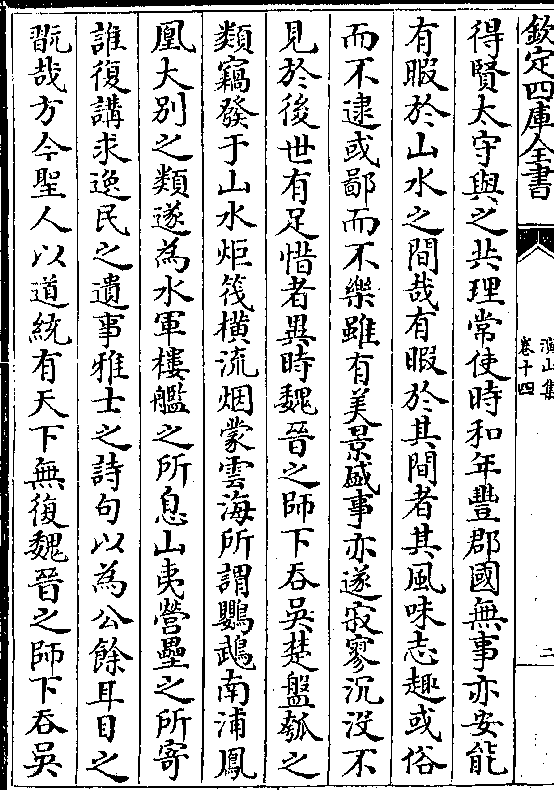 欽定四庫全書
演山集
卷十四
二
得賢太守與之共理常使時和年豐郡國無事亦安能
有暇於山水之間哉有暇於其間者其風味志趣或俗
而不逮或鄙而不樂雖有美景盛事亦遂寂寥沉没不
見於後世有足惜者異時魏晉之師下吞吳楚盤瓠之
類竊發于山水炬筏橫流烟蒙雲海所謂鸚鵡南浦鳳
凰大别之類遂為水軍樓艦之所息山夷營壘之所寄
誰復講求逸民之遺事雅士之詩句以為公餘耳目之
翫哉方今聖人以道統有天下無復魏晉之師下吞吳